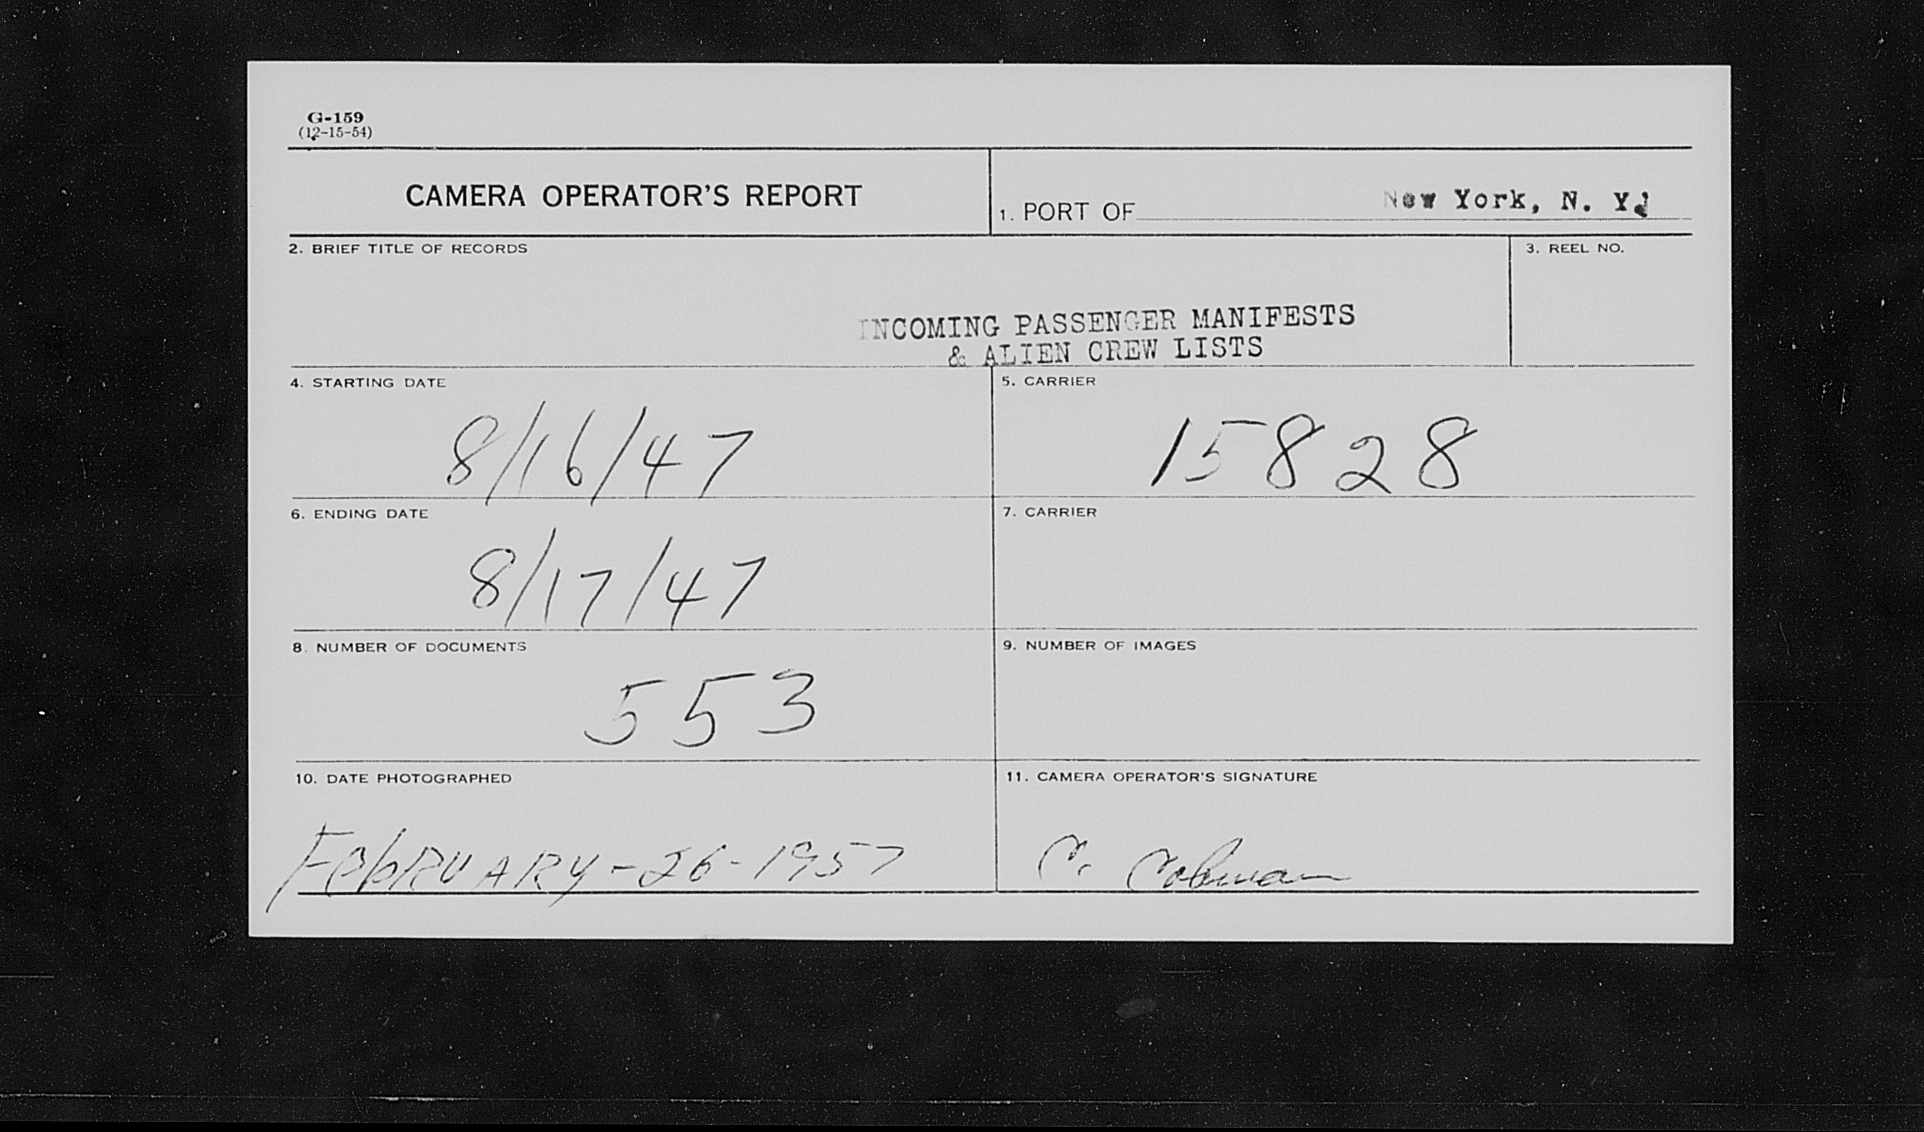 G-159
(12-15-54)
CAMERA OPERATOR'S REPORT
1. PORT OF New York, N. Y.
2. BRIEF TITLE OF RECORDS
3. REEL NO.
INCOMING PASSENGER MANIFESTS
& ALIEN CREW LISTS
4. STARTING DATE
8/16/47
5. CARRIER
15828
6. ENDING DATE
8/17/47
7. CARRIER
8. NUMBER OF DOCUMENTS
553
9. NUMBER OF IMAGES
10. DATE PHOTOGRAPHED
FebRUARY-26-1957
11. CAMERA OPERATOR'S SIGNATURE
C.